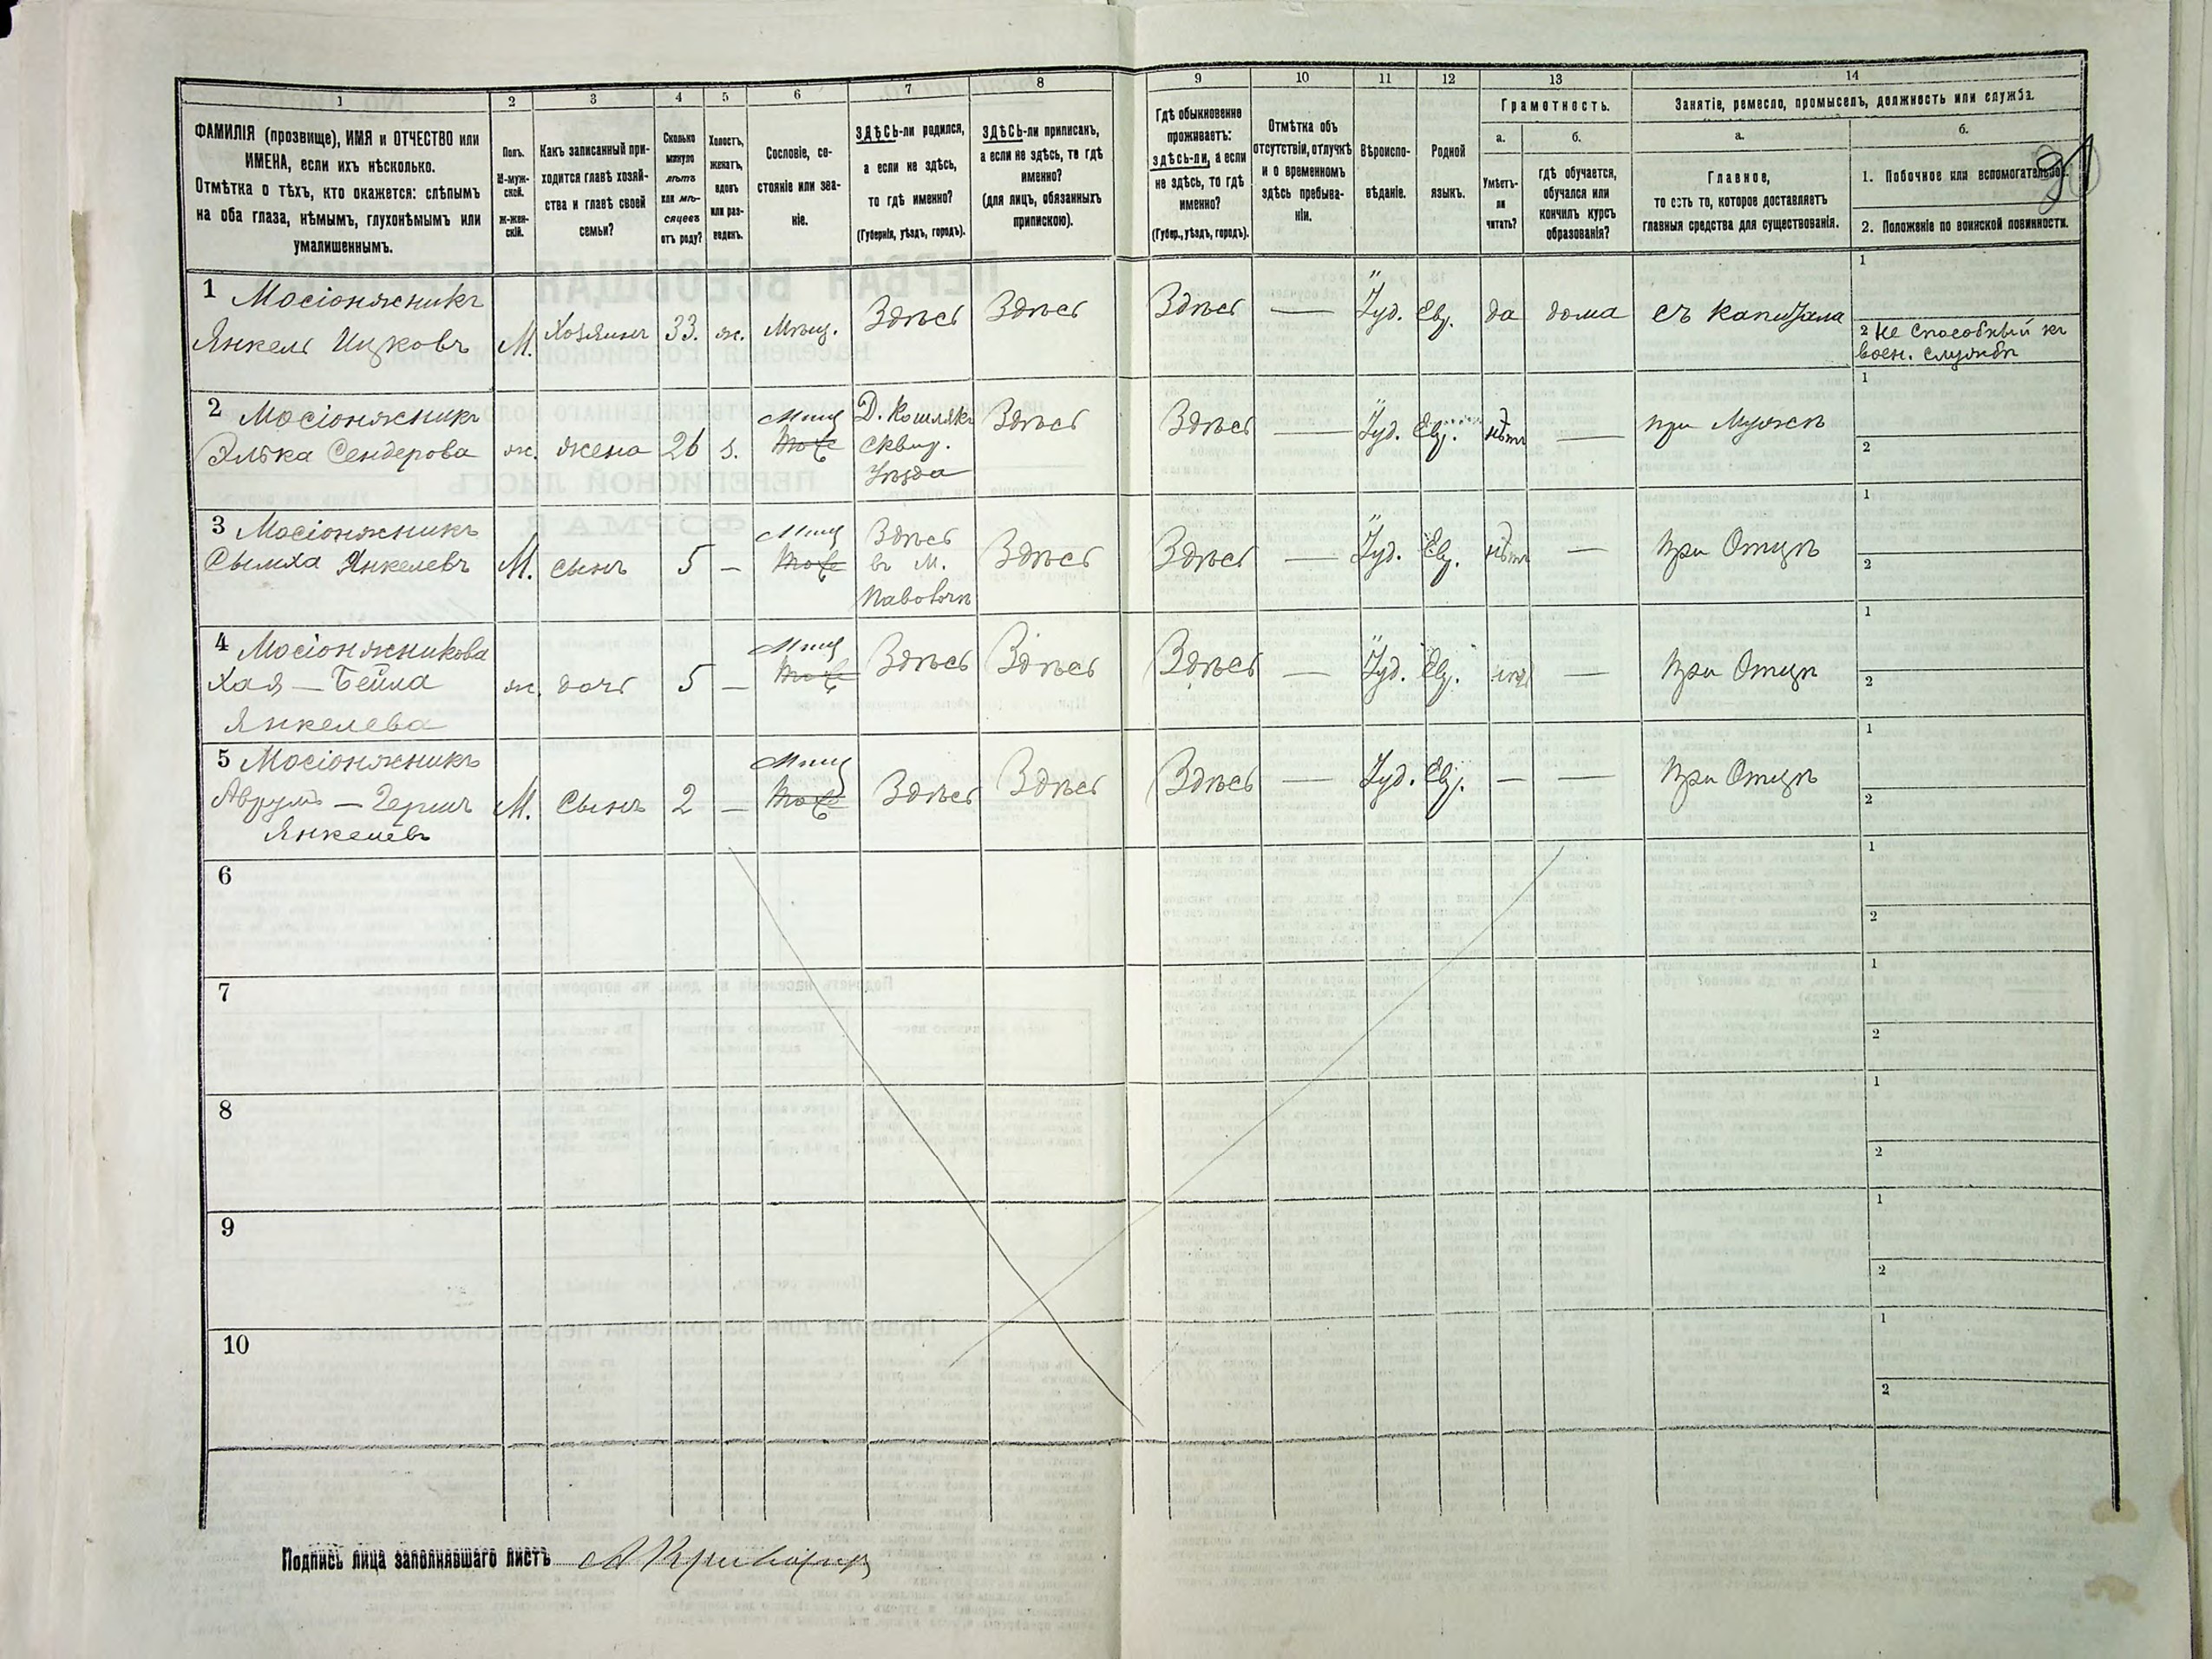 1 2 3 4 5 6 7 8 9 10 11 12 13 14
ФАМИЛІЯ (прозвище), ИМЯ и ОТЧЕСТВО или
ИМЕНА, если ихъ нѣсколько.
Отмѣтка о тѣхъ, кто окажется: слѣпымъ
на оба глаза, нѣмымъ, глухонѣмымъ или
умалишеннымъ.
Полъ.
М-муж-
ской.
ж-жен-
скій.
Какъ записанный при-
ходится главѣ хозяй-
ства и главѣ своей
семьи?
Сколько
минуло
лѣтъ
или мѣ-
сяцевъ
отъ роду?
Холостъ,
женатъ,
вдовъ
или раз-
веденъ.
Сословіе, со-
стояніе или зва-
ніе.
ЗДѢСЬ-ли родился,
а если не здѣсь,
то гдѣ именно?
(Губернія, уѣздъ, городъ).
ЗДѢСЬ-ли приписанъ,
а если не здѣсь, то гдѣ
именно?
(для лицъ, обязанныхъ
припискою).
Гдѣ обыкновенно
проживаетъ:
здѣсь-ли, а если
не здѣсь, то гдѣ
именно?
(Губер., уѣздъ, городъ).
Отмѣтка объ
отсутствіи, отлучкѣ
и о временномъ
здѣсь пребыва-
ніи.
Вѣроиспо-
вѣданіе.
Родной
языкъ.
Грамотность.
а.
Умѣетъ-
ли
читать?
б.
гдѣ обучается,
обучался или
кончилъ курсъ
образованія?
Занятіе, ремесло, промыселъ, должность или служба.
а.
Главное,
то есть то, которое доставляетъ
главныя средства для существованія.
б.
1. Побочное или вспомогательное.
2. Положеніе по воинской повинности.
1 Мосіонжникъ
Янкель Ицковъ
М. Хозяинъ 33. ж. Мѣщ. Здѣсь Здѣсь Здѣсь — Іуд. Евр. да дома съ капитала
1
2 Не способный къ
воен. службѣ
2 Мосіонжникъ
Элька Сендерова
ж. жена 26 з. Мѣщ
тоже
Д. Кошляки
Сквир.
Уѣзда
Здѣсь Здѣсь — Іуд. Евр. нѣтъ — при Мужѣ
1
2
3 Мосіонжникъ
Сымха Янкелевъ
М. сынъ 5 — Мѣщ
тоже
Здѣсь
въ М.
Паволочи
Здѣсь Здѣсь — Іуд. Евр. нѣтъ — при Отцѣ
1
2
4 Мосіонжникова
Хая — Бейла
Янкелева
ж. дочь 5 — Мѣщ
тоже
Здѣсь Здѣсь Здѣсь — Іуд. Евр. нѣтъ — при Отцѣ
1
2
5 Мосіонжникъ
Аврумъ — Гершъ
Янкелевъ
М. Сынъ 2 — Мѣщ
тоже
Здѣсь Здѣсь Здѣсь — Іуд. Евр. — — при Отцѣ
1
2
6
1
2
7
1
2
8
1
2
9
1
2
10
1
2
Подпись лица заполнявшаго листъ